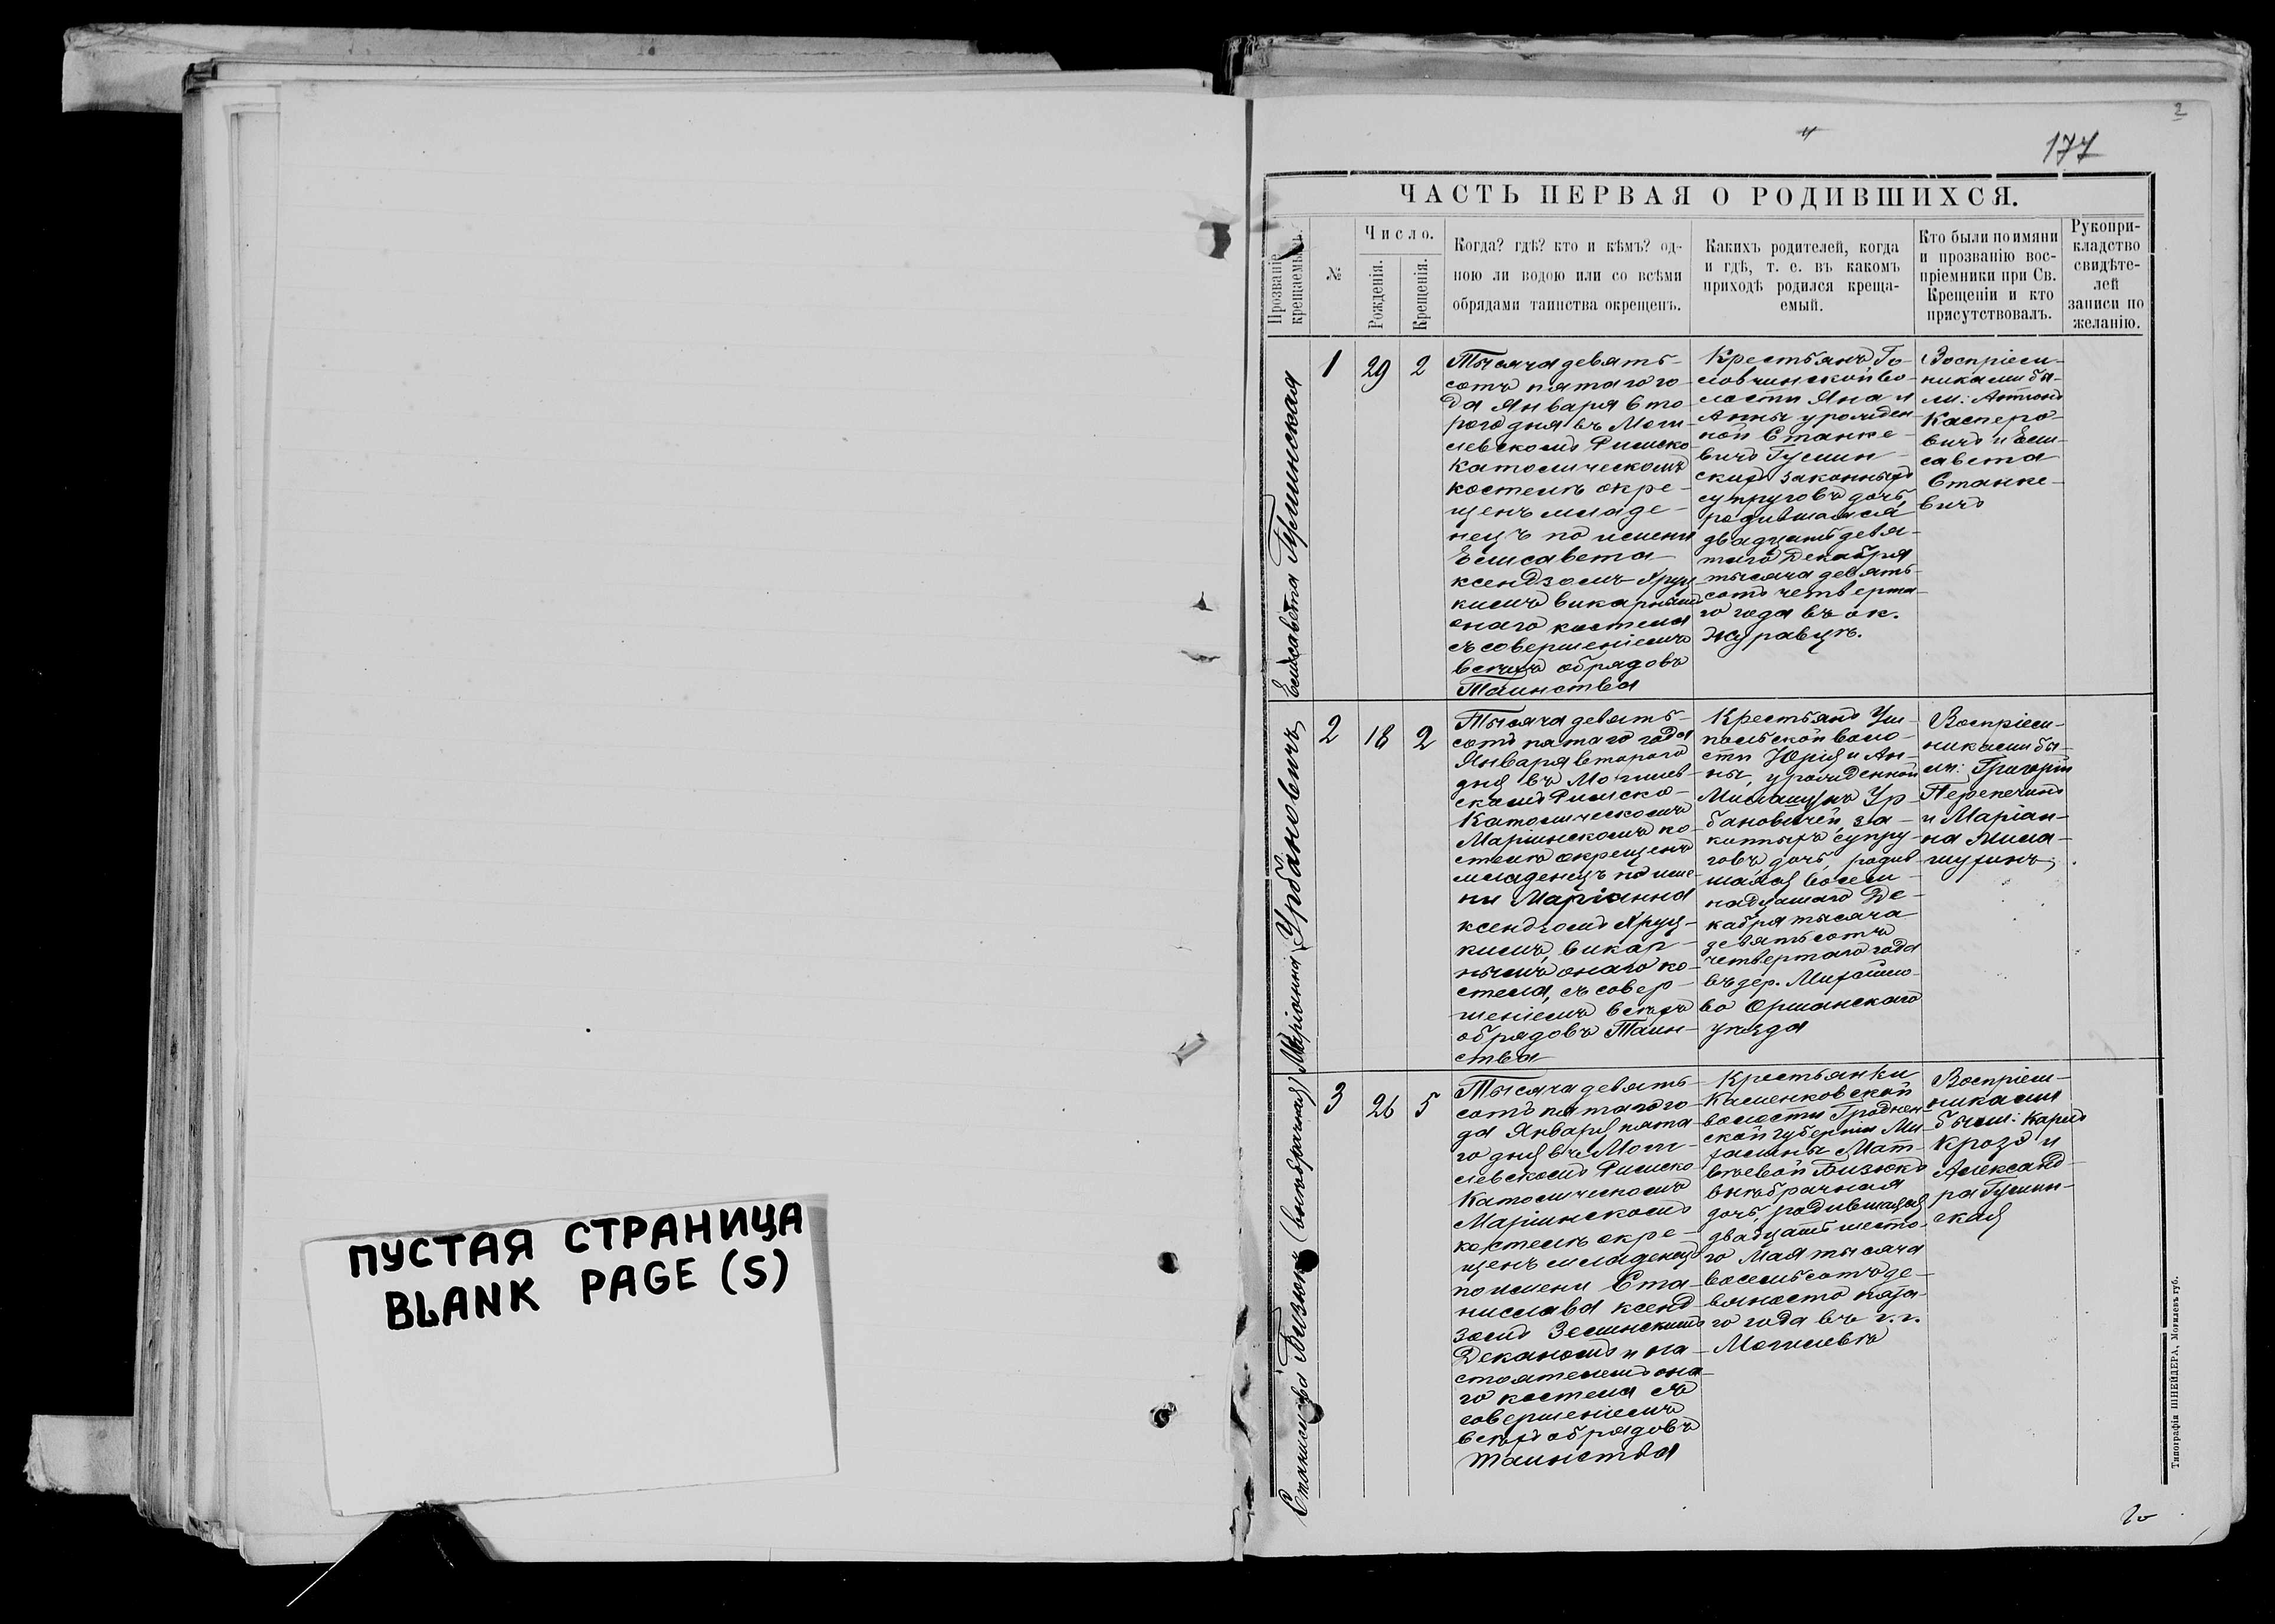 ПУСТАЯ СТРАНИЦА
BLANK PAGE (S)
2
177
ЧАСТЬ ПЕРВАЯ О РОДИВШИХСЯ.
Прозваніе
крещаемыхъ.
№
Число.
Рожденія.
Крещенія.
Когда? гдѣ? кто и кѣмъ? од-
ною ли водою или со всѣми
обрядами таинства окрещенъ.
Какихъ родителей, когда
и гдѣ, т. е. въ какомъ
приходѣ родился креща-
емый.
Кто были по имяни
и прозванію вос-
пріемники при Св.
Крещеніи и кто
присутствовалъ.
Рукопри-
кладство
свидѣте-
лей
записи по
желанію.
Елисавета Гулминская
1
29
2
Тысяча девять-
сотъ пятаго го-
да Января вто-
рого дня въ Моги-
левскомъ Римско-
Католическомъ
костелѣ окре-
щенъ младе-
нецъ по имени
Елисавета
ксендзомъ
викарнымъ
онаго костела
съ совершеніемъ
всѣхъ обрядовъ
Таинства
Крестьянъ Го-
ловчинской во-
лости Яна и
Анны урожден-
ной Станке-
вичъ
законныхъ
супруговъ дочь,
родившаяся
двадцать девя-
таго Декабря
тысяча девять-
сотъ четверта-
го года въ ок.
Журавцѣ.
Воспріем-
никами бы-
ли: Антонъ
Касперо-
вичъ и Ели-
савета
Станке-
вичъ
Маріанна Урбановичъ
2
18
2
Тысяча девять-
сотъ пятаго года
Января второго
дня въ Могилев-
скомъ Римско-
Католическомъ
Маріинскомъ ко-
стелѣ окрещенъ
младенецъ по име-
ни Маріанна
ксендзомъ
викар-
нымъ онаго ко-
стела, съ совер-
шеніемъ всѣхъ
обрядовъ Таин-
ства
Крестьянъ
польской воло-
сти Юрія и Ан-
ны, урожденной
Ур-
бановичей, за-
конныхъ супру-
говъ дочь, родив-
шаяся восем-
надцатаго Де-
кабря тысяча
девятьсотъ
четвертаго года
въ дер. Михайло-
во Оршанскаго
уѣзда
Воспріем-
никами бы-
ли: Григорій
Перепечинъ
и Маріан-
на
Станислава Бизюкъ (внѣбрачная)
3
26
5
Тысяча девять-
сотъ пятаго го-
да Января пята-
го дня въ Моги-
левскомъ Римско-
Католическомъ
Маріинскомъ
костелѣ окре-
щенъ младенецъ
по имени Ста-
нислава ксенд-
зомъ Землинскимъ
Деканомъ и на-
стоятелемъ она-
го костела съ
совершеніемъ
всѣхъ обрядовъ
таинства
Крестьянки
Каменковской
волости Гроднен-
ской губерніи Ми-
халины Мат-
вѣевой Бизюкъ
внѣбрачная
дочь, родившаяся
двадцать шесто-
го Мая тысяча
восемьсотъ де-
вяносто пята-
го года въ г.г.
Могилевѣ
Воспріем-
никами
были: Карлъ
Крозъ и
Александ-
ра Гулмин-
ская
Типографія ШНЕЙДЕРА, Могилевъ губ.